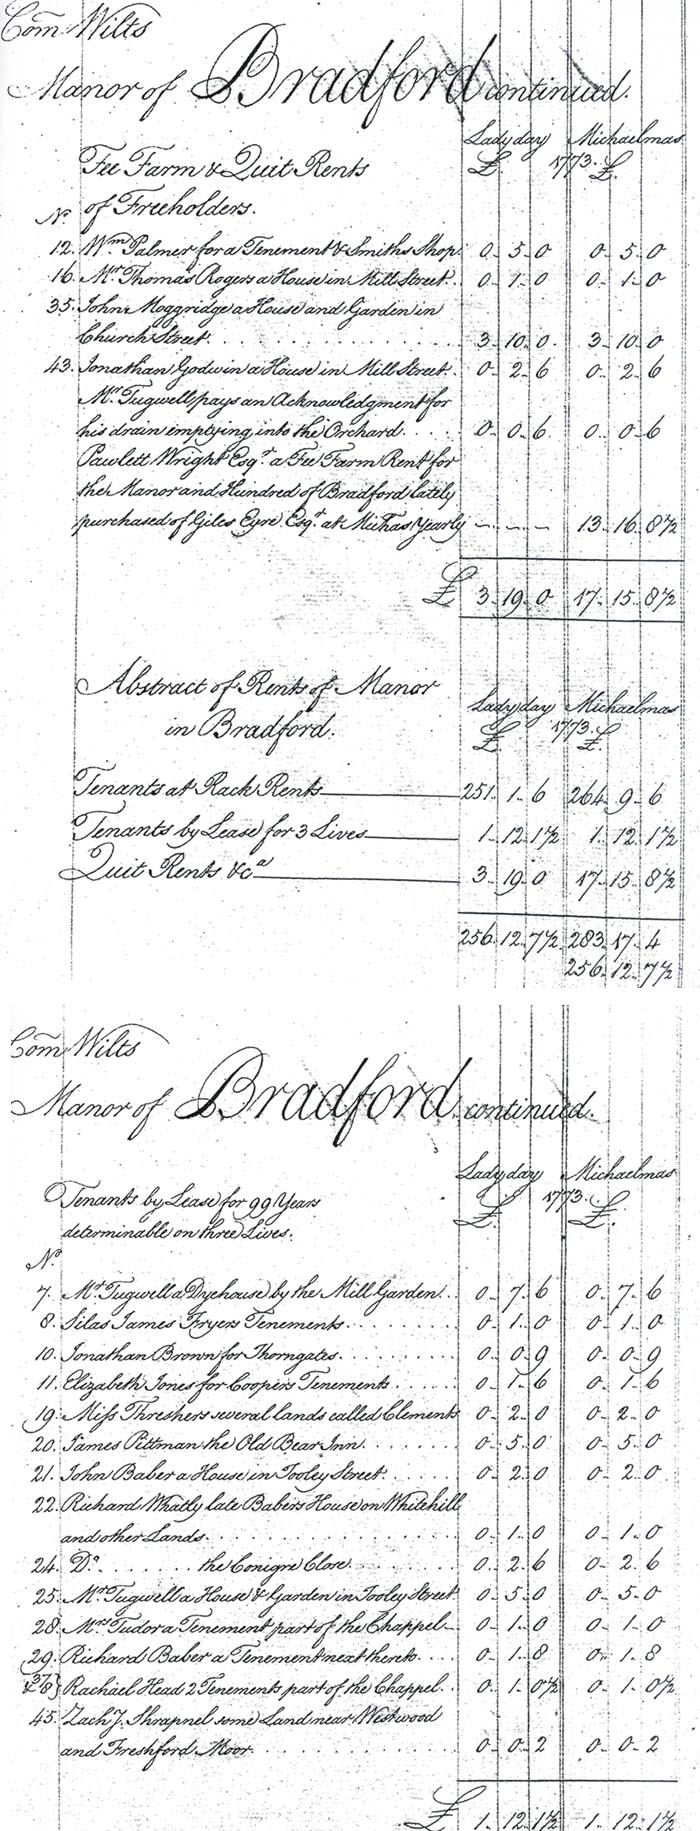 Com Wilts
Manor of Bradford continued.
Lady day Michaelmas
Fee Farm & Quit Rents £. 1773. £.
No. of Freeholders.
12. Wm. Palmer for a Tenement & Smiths Shop. 0. 5. 0 0. 5. 0
16. Mr. Thomas Rogers a House in Mill Street. 0. 1. 0 0. 1. 0
35. John Moggridge a House and Garden in
Church Street. 3. 10. 0. 3. 10. 0
43. Jonathan Godwin a House in Mill Street. 0. 2. 6 0. 2. 6
Mr. Tugwell pays an Acknowledgment for
his drain emptying into the Orchard. 0. 0. 6 0. 0. 6
Pawlett Wright Esqr. a Fee Farm Rent for
the Manor and Hundred of Bradford lately
purchased of Giles Eyre Esqr. at Michas Yearly — — — 13. 16. 8½
£ 3. 19. 0 17. 15. 8½
Abstract of Rents of Manor
in Bradford.
Lady day Michaelmas
£. 1773. £.
Tenants at Rack Rents 251. 1. 6 264. 9. 6
Tenants by Lease for 3 Lives 1. 12. 1½ 1. 12. 1½
Quit Rents &ca 3. 19. 0 17. 15. 8½
256. 12. 7½ 283. 17. 4
256. 12. 7½
Com Wilts
Manor of Bradford continued.
Lady day Michaelmas
Tenants by Lease for 99 Years £. 1773. £.
determinable on three Lives.
No.
7. Mr. Tugwell a Dyehouse by the Mill Garden. 0. 7. 6 0. 7. 6
8. Silas James Fryers Tenements. 0. 1. 0 0. 1. 0
10. Jonathan Brown for Thorngates. 0. 0. 9 0. 0. 9
11. Elizabeth Jones for Coopers Tenements 0. 1. 6 0. 1. 6
19. Miss Threshers several lands called Clements 0. 2. 0 0. 2. 0
20. James Pittman the Old Bear Inn. 0. 5. 0 0. 5. 0
21. John Baber a House in Tooley Street. 0. 2. 0 0. 2. 0
22. Richard Whatly late Babers House on Whitehill
and other Lands. 0. 1. 0 0. 1. 0
24. Do. the Conigre Close. 0. 2. 6 0. 2. 6
25. Mr. Tugwell a House & Garden in Tooley Street. 0. 5. 0 0. 5. 0
28. Mrs. Tudor a Tenement part of the Chappel 0. 1. 0 0. 1. 0
29. Richard Baber a Tenement neat thereto. 0. 1. 8 0. 1. 8
37 & 8} Rachael Head 2 Tenements part of the Chappel. 0. 1. 0½ 0. 1. 0½
45. Zachy. Shrapnel some Land near Westwood
and Freshford Moor. 0. 0. 2 0. 0. 2
£ 1. 12. 1½ 1. 12. 1½